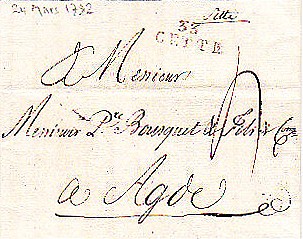 24 Mars 1792
Cette
33
CETTE
à Monsieur
Monsieur Pre. Bousquet & fils & Cie
a Agde